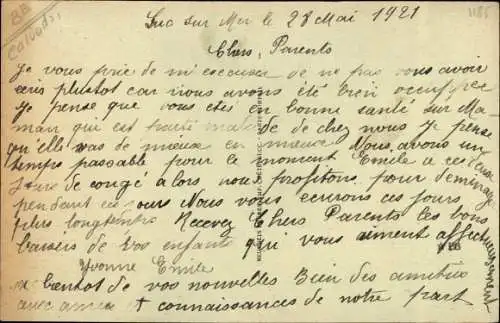 88
Calvados
1185
Luc sur Mer le 28 Mai 1921
Chers Parents
Je vous prie de m'escuser de ne pas vous avoir
ecris plutot car nous avons été bien occuppez
Je pense que vous etes en bonne santé sur Ma-
man qui est malade de chez nous Je pense
qu'elle vas de mieux en mieux Nous avons un
temps passable pour le moment Emile a ces
Jours de congé alors nous profitons pour
pendant ces jours Nous vous ecrirons ces jours
plus longtemps Recevez Chers Parents les bons
baisers de Vos enfants qui vous aiment affectueusement
Yvonne Emile
a bientot de vos nouvelles Bien des amitiés
aux amis et connaissances de notre part